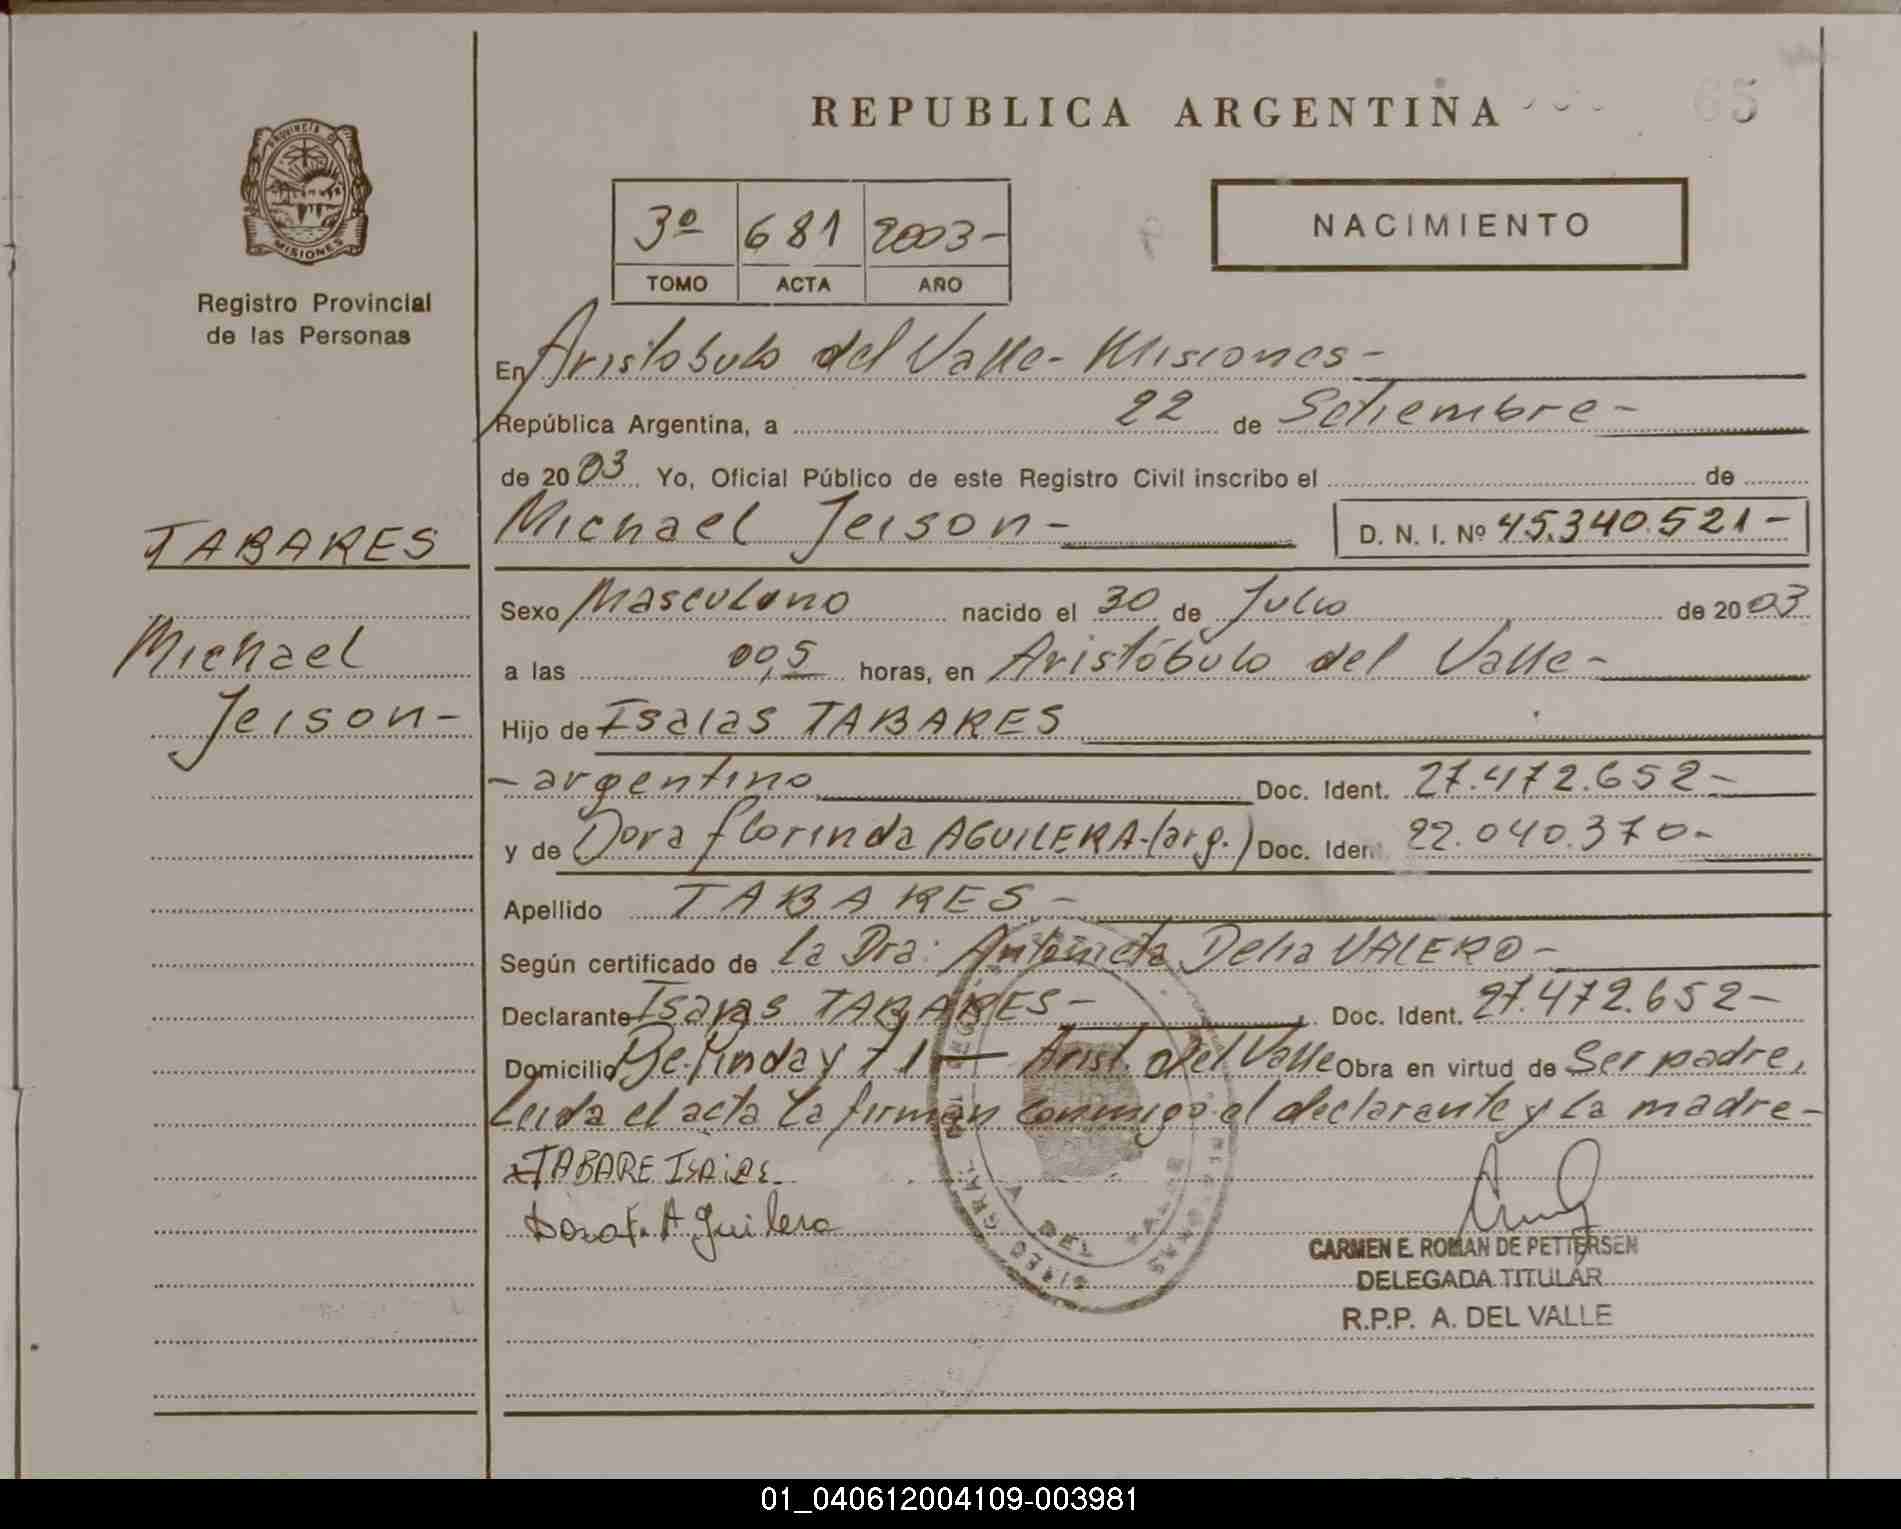 REPUBLICA ARGENTINA
65
PROVINCIA DE
MISIONES
Registro Provincial
de las Personas
3º 681 2003-
TOMO ACTA AÑO
NACIMIENTO
En Aristobulo del Valle- Misiones-
República Argentina, a 22 de Setiembre-
de 2003 Yo, Oficial Público de este Registro Civil inscribo el de
TABARES
Michael Jeison- D. N. I. Nº 45.340.521-
Sexo Masculino nacido el 30 de Julio de 2003
Michael
a las 00,5 horas, en Aristóbulo del Valle-
Jeison-
Hijo de Isaias TABARES
-argentino Doc. Ident. 27.472.652-
y de Dora florinda AGUILERA-(arg.) Doc. Iden 22.040.370-
Apellido TABARES-
Según certificado de la Dra: Antonieta Delia VALERO-
Declarante Isaias TABARES- Doc. Ident. 27.472.652-
Domicilio Arist. del Valle Obra en virtud de Ser padre,
Leida el acta la firman conmigo el declarante y la madre-
TABARE ISAIAS
Dora F. Aguilera
CARMEN E. ROMAN DE PETTERSEN
DELEGADA TITULAR
R.P.P. A. DEL VALLE
01_040612004109-003981